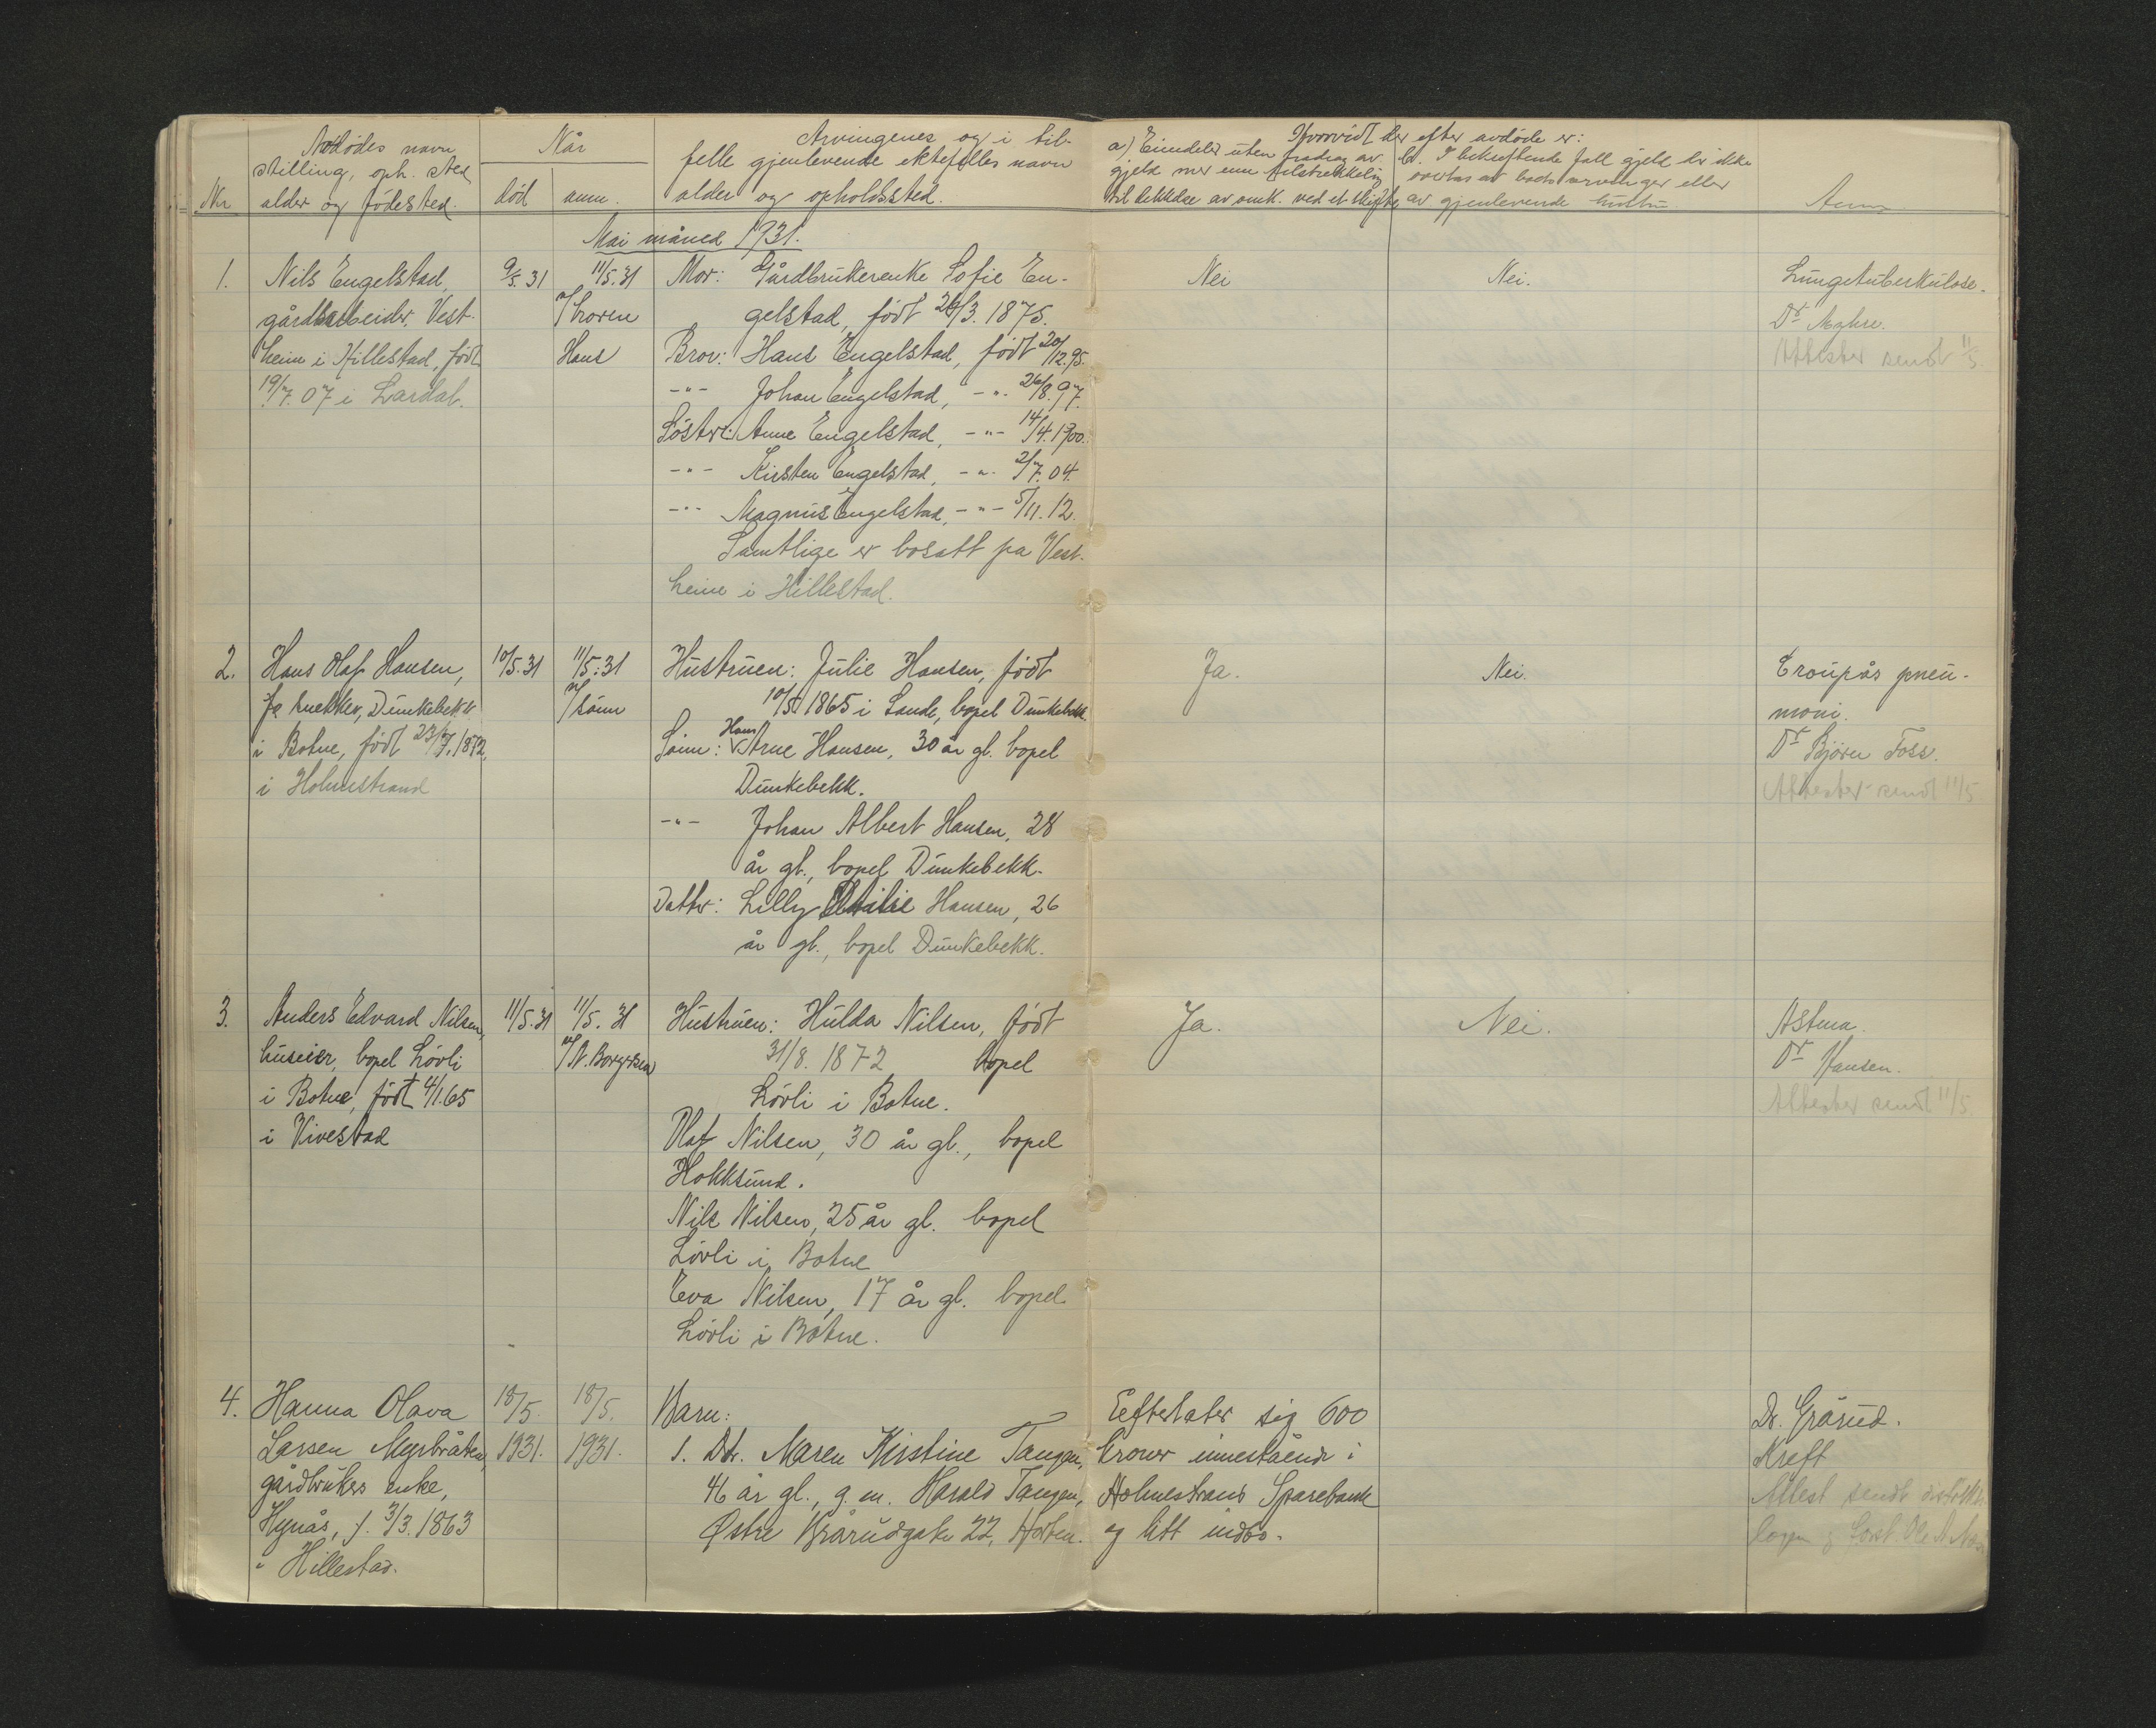 Avdødes navn
stilling, oph. sted
alder og fødested.
Nr
Når
død
anm.
Arvingenes og i til-
felle gjenlevende ektefelles navn
alder og opholdssted.
Hvorvidt der efter avdøde er:
a) Eiendeler uten fradrag av
gjeld mer enn tilstrekkelig
til dekkelse av omk. ved et skifte
b. I bekreftende fall gjeld der ikke
overtas av arvinger eller
av gjenlevende
Anm
Mai måned 1931.
1.
Nils Engelstad,
gårdsarbeider, Vest-
heim i Hillestad, født
19/7.07 i Lardal.
9/5.31
11/5.31
v/ broren
Hans
Mor: Gårdbrukerenke Sofie En-
gelstad, født 26/3.1875.
Bror: Hans Engelstad, født 20/12.95.
-"- Johan Engelstad, -"- 26/8.97.
Søster: Anne Engelstad, -"- 14/4.1900.
-"- Kirsten Engelstad, -"- 2/7.04.
-"- Magnus Engelstad, -"- 5/11.12.
Samtlige er bosatt på Vest-
heim i Hillestad.
Nei
Nei.
Lungetuberkulose.
Dr
Attester sendt 11/5
2.
Hans Olaf Hansen,
Dunkebekk
i Botne, født 23/7.1872,
i Holmestrand
10/5.31
11/5.31
v/ sønn
Hustruen: Julie Hansen, født
10/5 1865 i Sande, bopel Dunkebekk
Sønn: Hans Arne Hansen, 30 år gl. bopel
Dunkebekk.
-"- Johan Albert Hansen, 28
år gl., bopel Dunkebekk.
Datter: Lilly Hansen, 26
år gl., bopel Dunkebekk.
Ja.
Nei.
Croupøs pneu-
moni.
Dr Bjørn Foss.
Attester sendt 11/5.
3.
Anders Edvard Nilsen,
huseier, bopel Løvli
i Botne, født 4/1.65
i Vivestad
11/5.31
11/5.31
v/ N. Borgersen
Hustruen: Hulda Nilsen, født
31/8.1872, bopel
Løvli i Botne.
Olaf Nilsen, 30 år gl., bopel
Hokksund.
Nils Nilsen, 25 år gl. bopel
Løvli i Botne
Eva Nilsen, 17 år gl. bopel
Løvli i Botne.
Ja.
Nei.
Astma.
Dr Hansen.
Attester sendt 11/5.
4.
Hanna Olava
Larsen Myrbråten,
gårdbrukers enke,
Hynås, f. 3/3.1863
i Hillestad.
18/5.
1931.
18/5.
1931.
Barn:
1. Dtr. Maren Kirstine Tangen,
46 år gl., g.m. Harald Tangen,
Østre Brårudgate 22, Horten.
Efterlater sig 600
kroner innestående i
Holmestrand Sparebank
og litt indbo.
Dr. Grårud.
Kreft
Attest sendt
og